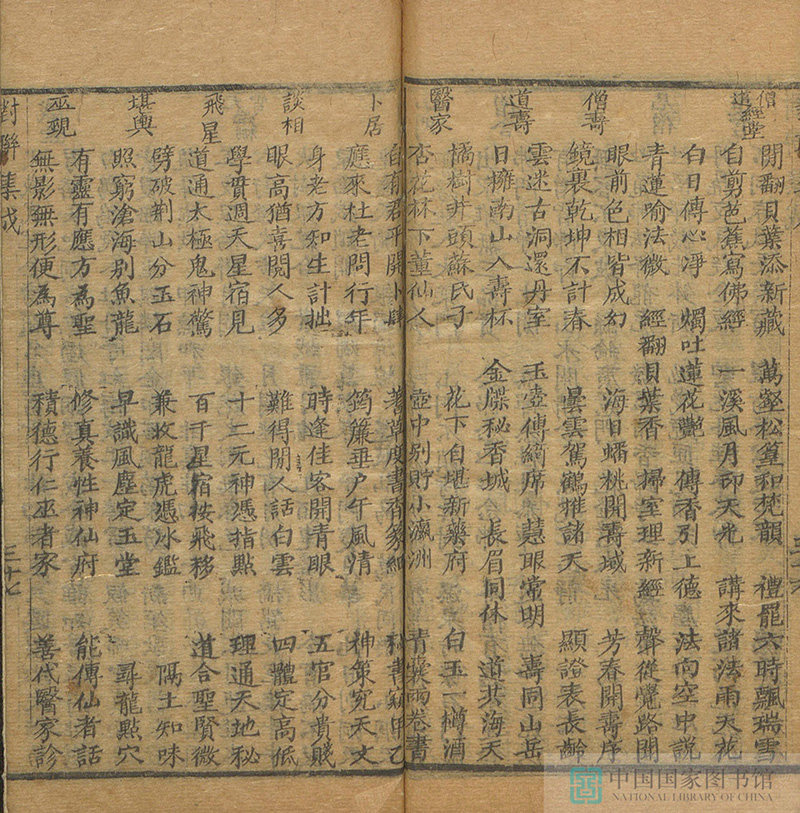 僧
道經堂
閒翻貝葉添新藏 萬壑松篁和梵韻 禮罷六時飄瑞雪
自剪芭蕉寫佛經 一溪風月印天光 講來諸法雨天花
白日傳心凈 燭吐蓮花艷 傳香引上德 法向空中說
青蓮喻法微 經翻貝葉香 掃室理新經 聲從覺路開
僧壽
眼前色相皆成幻 海日蟠桃開壽域 芳春開壽序
鏡裏乾坤不計春 曇雲駕鶴推諸天 顯證表長齡
道壽
雲迷古洞還丹室 玉壺傳綺席 慧眼常明 壽同山岳
日擁南山入壽杯 金牒秘香城 長眉同休 道共海天
醫家
橘樹井頭蘇氏子 花下白墡新藥府 白玉一樽酒
杏花林下董仙人 壺中別貯小瀛洲 青囊兩卷書
卜居
自有君平開卜肆 蓍草皮書香篆細
應來杜老問行年 筠簾垂户午風清 神策究天文
談相
身老方知生計拙 時逢佳客開青眼 五官分貴賤
眼高猶喜閱人多 難得閒人話白雲 四體定高低
飛星
學貫週天星宿見 十二元神憑指點 理通天地秘
道通太極鬼神驚 百千星宿按飛移 道合聖賢微
堪輿
劈破荆山分玉石 兼收龍虎憑冰鑑 隅土知味
照窮滄海別魚龍 早識風塵定玉堂 尋龍點穴
巫覡
有靈有應方為聖 修真養性神仙府 能傳仙者話
無影無形便為尊 積德行仁巫者家 善代醫家診
對聯集成
三十七
中国国家图书馆
NATIONAL LIBRARY OF CHINA